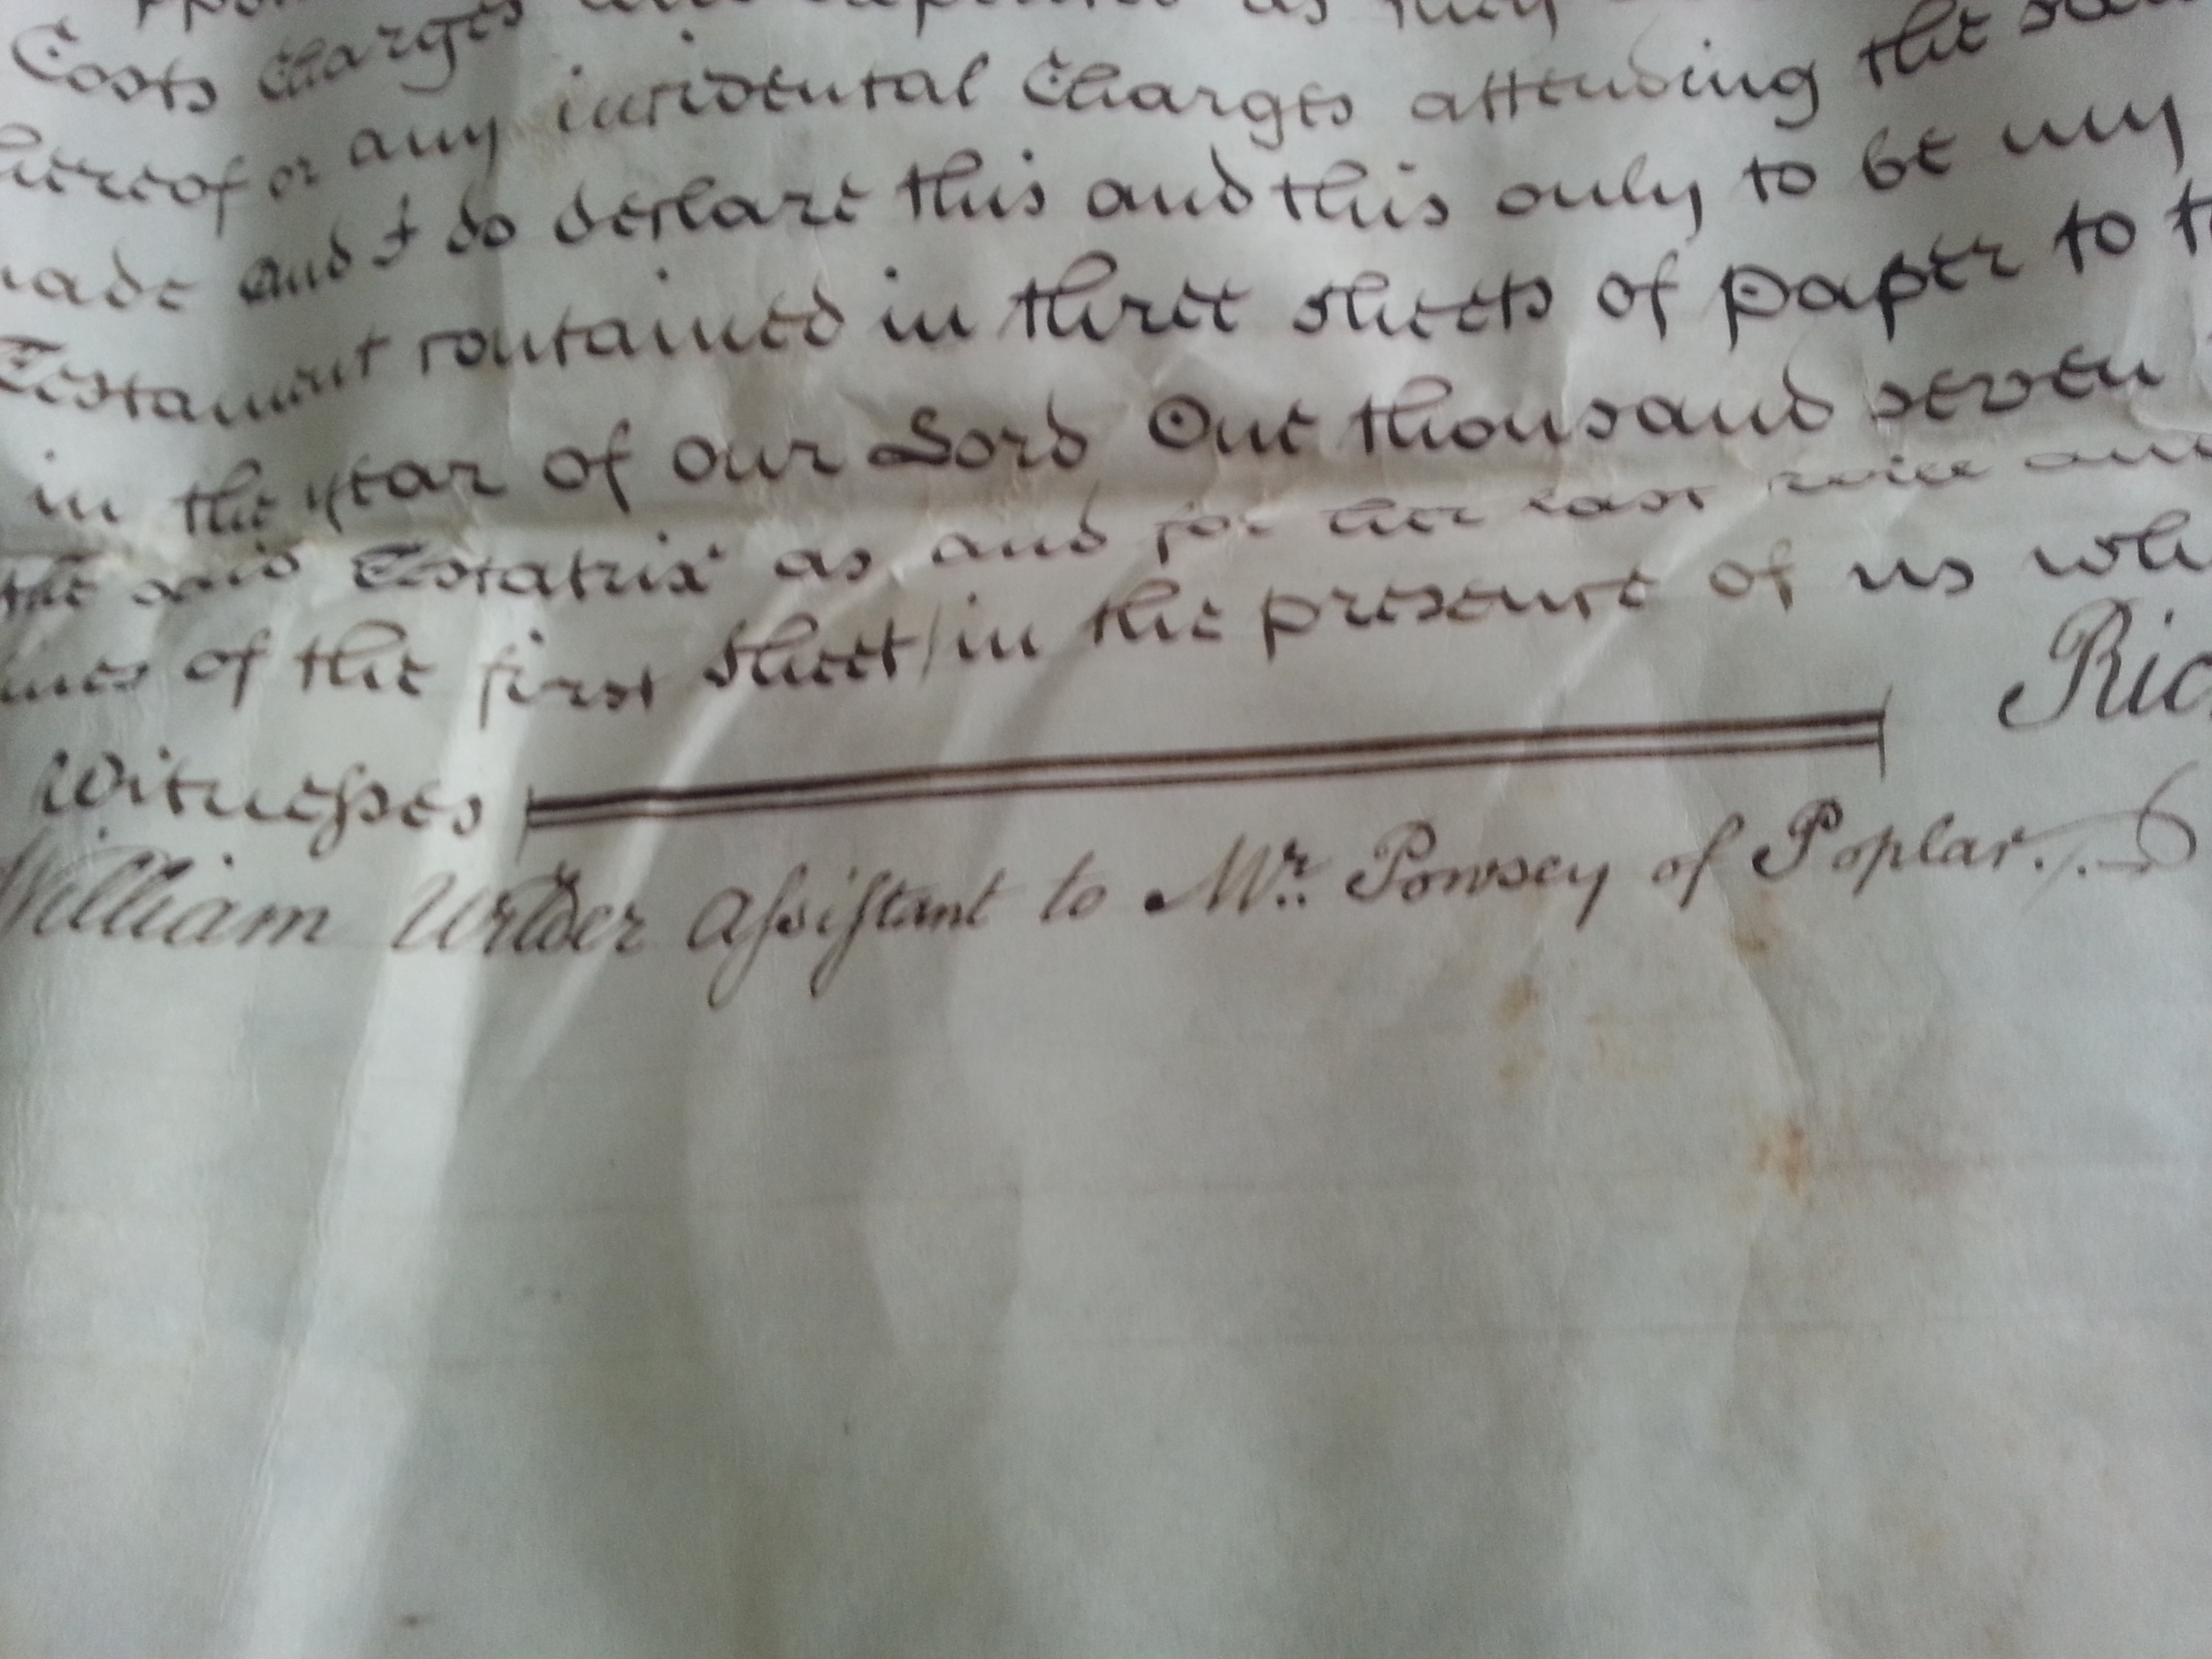 Costs Charges and expences as they
hereof or any incidental Charges attending the
made And I do declare this and this only to be my
Testament contained in three sheets of paper to
in the year of our Lord One thousand seven
the said Testatrix as and for her last will and
lines of the first sheet/in the presence of us
Ric
Witnesses
William Wilder Assistant to Mr. Powsey of Poplar.